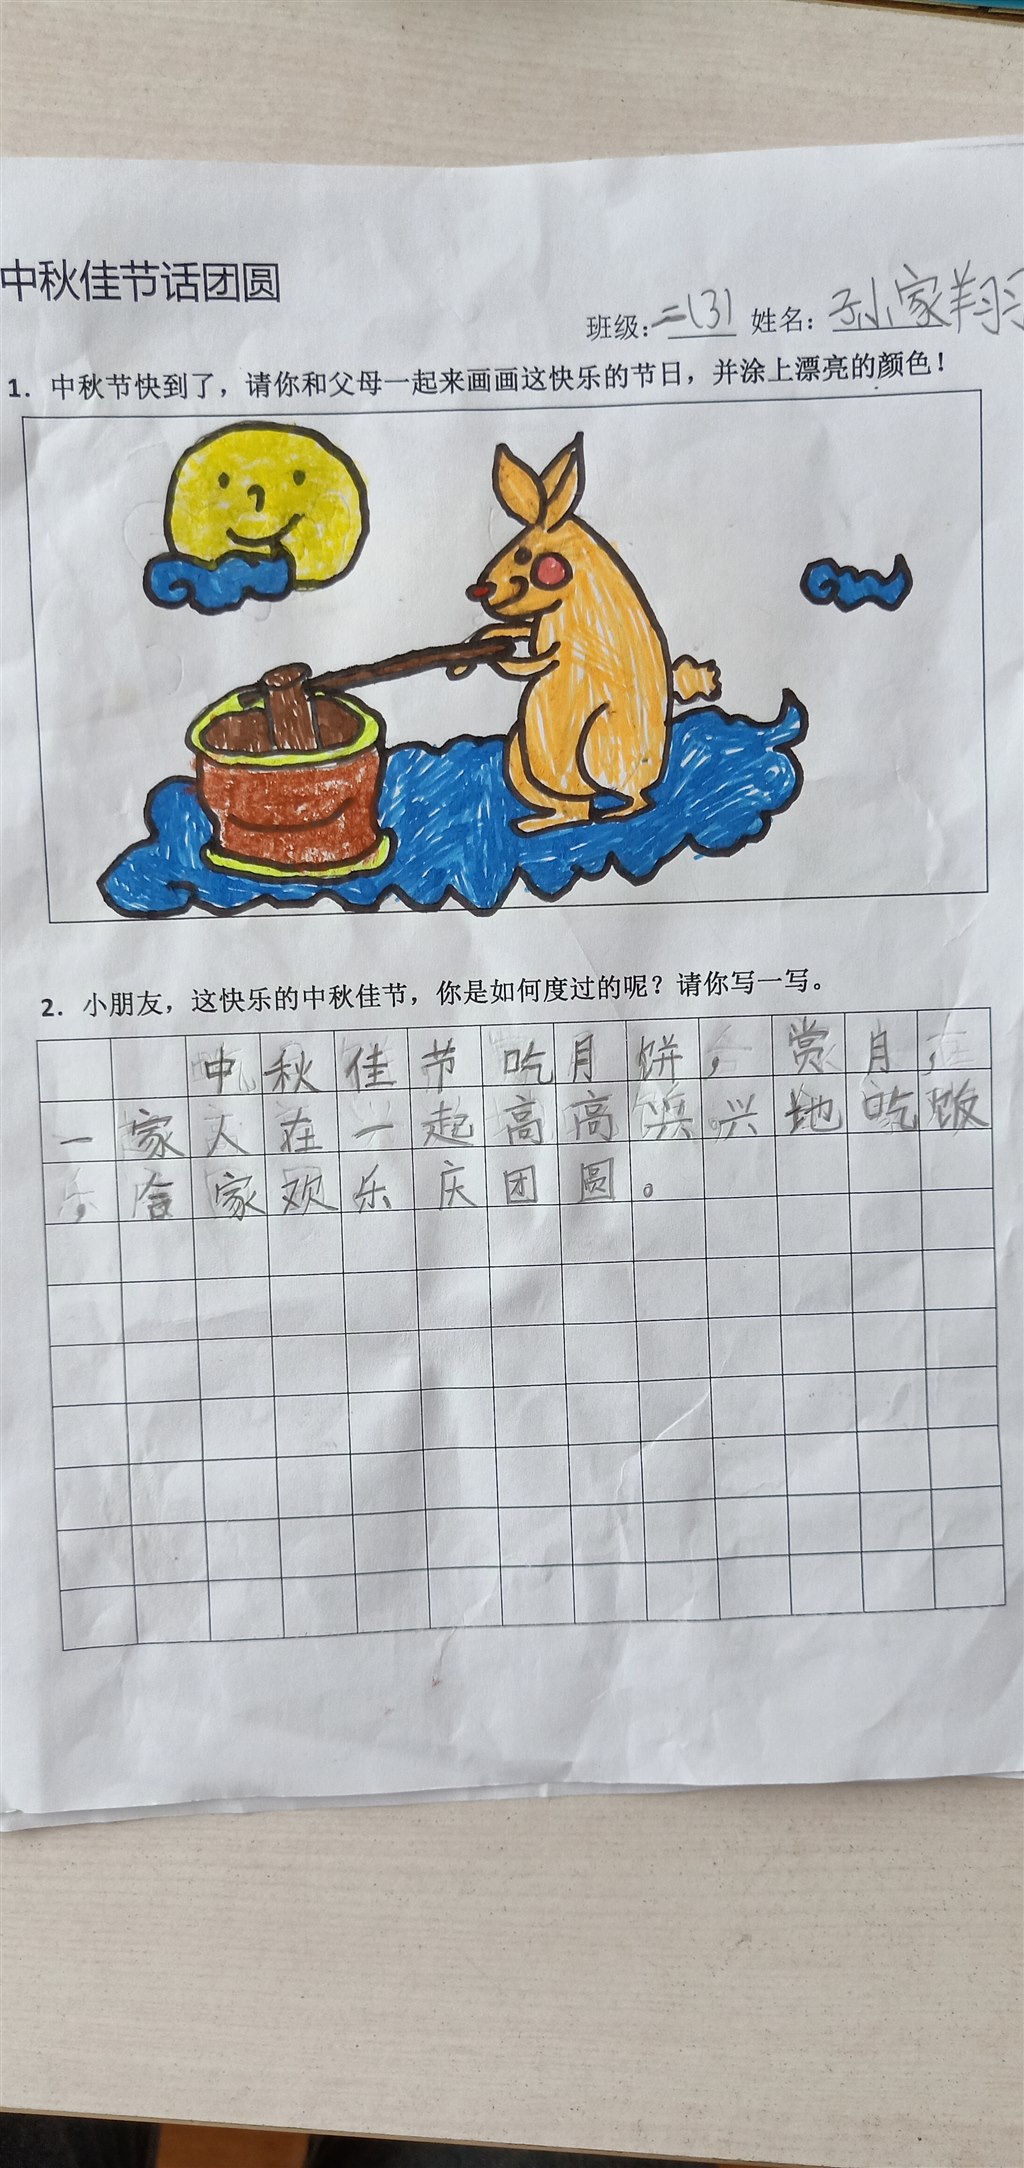 中秋佳节话团圆
班级：二(3) 姓名：孙家翔
1. 中秋节快到了，请你和父母一起来画画这快乐的节日，并涂上漂亮的颜色！
2. 小朋友，这快乐的中秋佳节，你是如何度过的呢？请你写一写。
中秋佳节吃月饼，赏月，
一家人在一起高高兴兴地吃饭
，合家欢乐庆团圆。